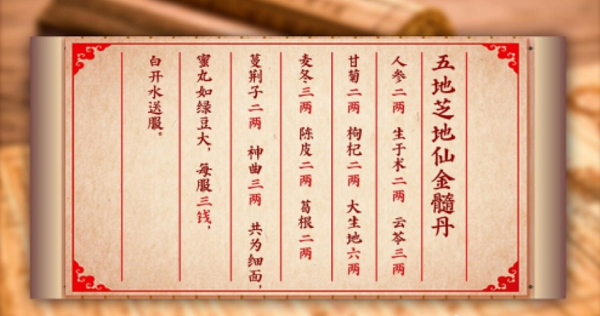 五地芝地仙金髓丹
人参二两 生于术二两 云苓三两
甘菊二两 枸杞二两 大生地六两
麦冬三两 陈皮二两 葛根二两
蔓荆子二两 神曲三两 共为细面，
蜜丸如绿豆大，每服三钱，
白开水送服。